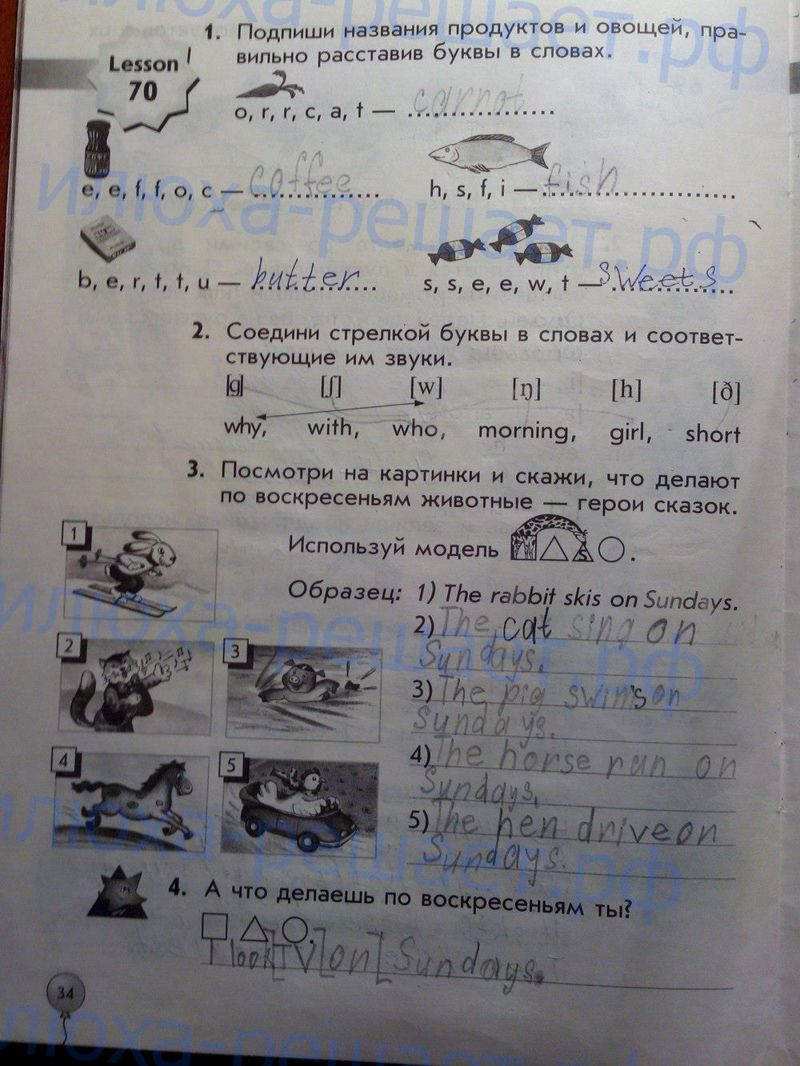 1. Подпиши названия продуктов и овощей, пра-
вильно расставив буквы в словах.
Lesson
70
o, r, r, c, a, t — carrot
e, e, f, f, o, c — coffee
h, s, f, i — fish
b, e, r, t, t, u — butter
s, s, e, e, w, t — sweets
2. Соедини стрелкой буквы в словах и соответ-
ствующие им звуки.
[g] [ʃ] [w] [ŋ] [h] [ð]
why, with, who, morning, girl, short
3. Посмотри на картинки и скажи, что делают
по воскресеньям животные — герои сказок.
Используй модель
Образец: 1) The rabbit skis on Sundays.
1
2) The cat sing on
Sundays.
2
3
3) The pig swims on
Sundays.
4) The horse run on
Sundays.
4
5
5) The hen drive on
Sundays.
4. А что делаешь по воскресеньям ты?
I look TV on Sundays.
34
илюха-решает.рф
илюха-решает.рф
илюха-решает.рф
илюха-решает.рф
илюха-решает.рф